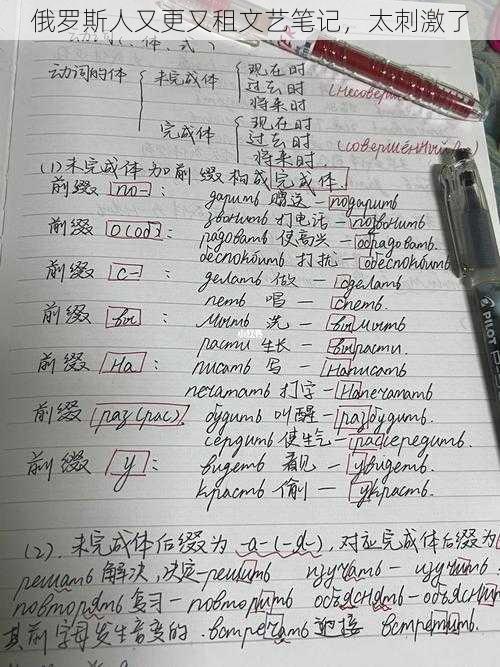 俄罗斯人又更又租文艺笔记，太刺激了
动词的体 未完成体 现在时
过去时
将来时
完成体 现在时
过去时
将来时.
(1)未完成体加前缀构成完成体.
前缀 по- : дарить 赠送 — подарить
звонить 打电话 — позвонить
前缀 о(об) : радовать 使高兴 — обрадовать.
беспокоить 打扰 — обеспокоить
前缀 с- : делать 做 — сделать
петь 唱 — спеть.
前缀 вы : мыть 洗 — вымыть
расти 生长 — вырасти.
前缀 на : писать 写 — написать
печатать 打字 — напечатать
前缀 раз(рас). будить 叫醒 — разбудить.
сердить 使生气 —
前缀 у : видеть 看见 — увидеть.
красть 偷 — украсть.
(2). 未完成体后缀为 -а-(-я-), 对应完成体后缀为
решать 解决,决定 — решить изучать — изучить.
повторять 复习 — повторить объяснять — объяснить
其前字母发生音变的. встречать 迎接 встретить.
PILOT